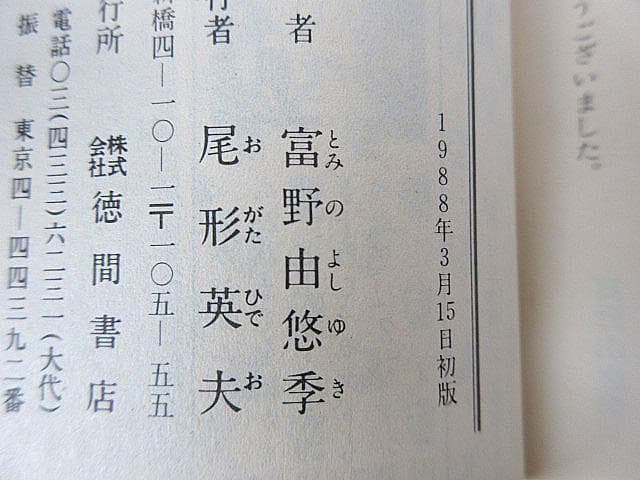 うございました。
1988年3月15日初版
者 富野由悠季
とみ の よし ゆ き
行者 尾形英夫
お がた ひで お
橋四—一〇—一〒一〇五—五五
行所 株式会社 徳間書店
電話〇三(四三三)六二三一(大代)
振替 東京四—四四三九二番